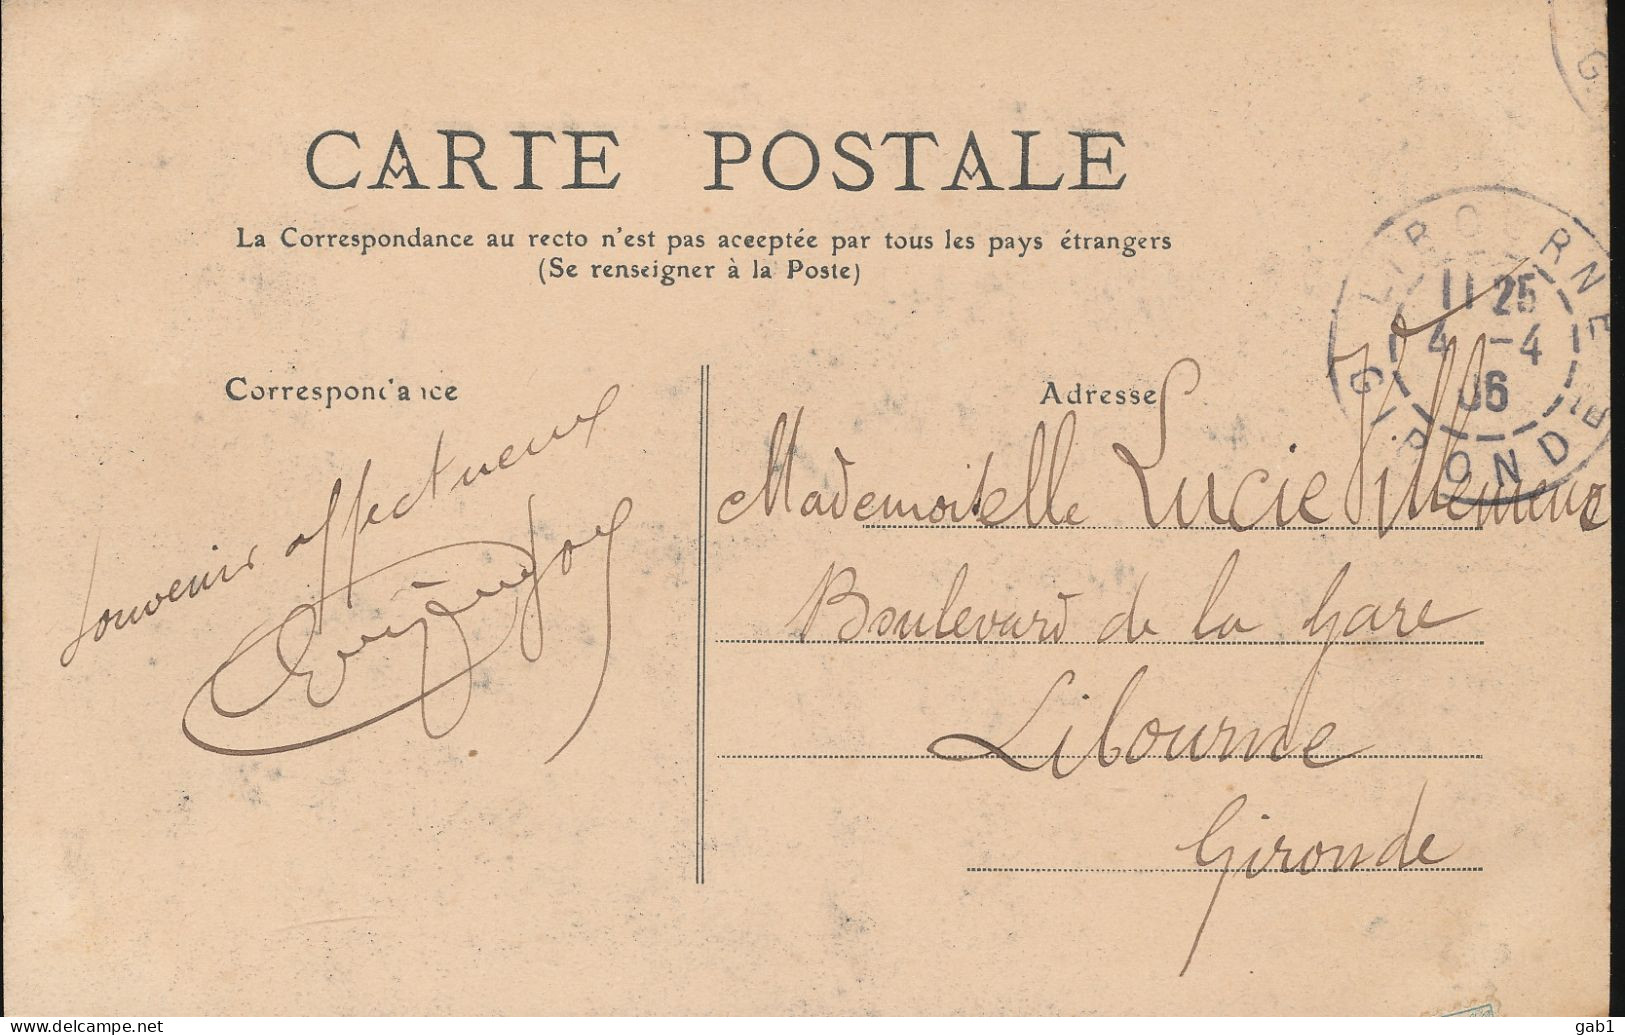 CARTE POSTALE
La Correspondance au recto n'est pas acceptée par tous les pays étrangers
(Se renseigner à la Poste)
LIBOURNE
11 25
4 -4
06
GIRONDE
Correspondance
Adresse
Souvenir affectueux
Mademoiselle Lucie
Boulevard de la Gare
Libourne
Gironde
www.delcampe.net
gab1